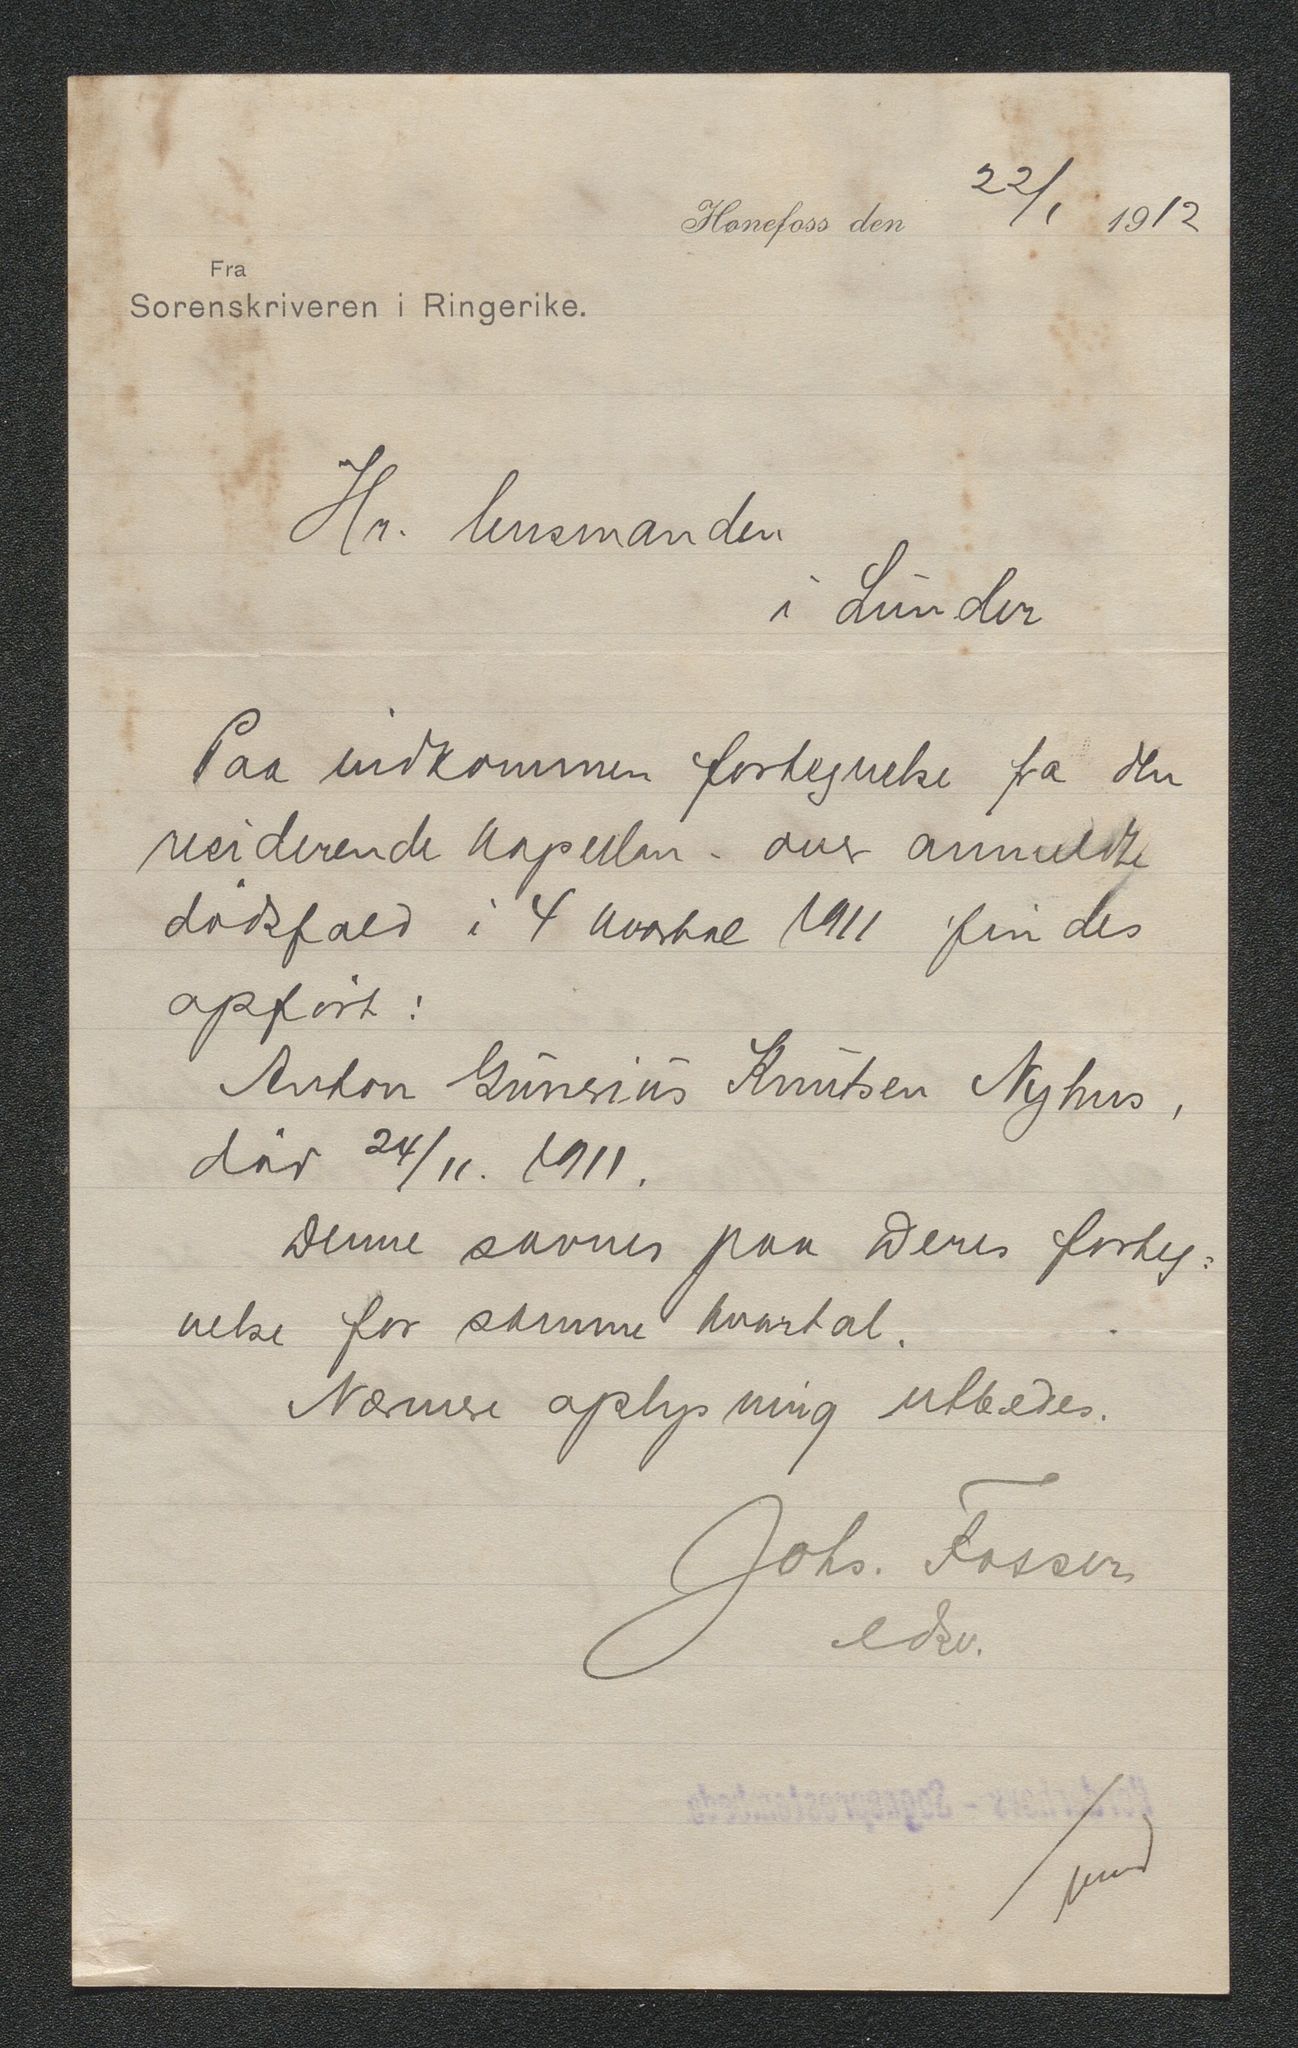 Hønefoss den 22/1 1912
Fra
Sorenskriveren i Ringerike.
Hr. lensmanden
i Lunder
Paa indkommen fortegnelse fra den
residerende kapellan - over anmeldte
dødsfald i 4 kvartal 1911 findes
opført:
Anton Gunerius Knutsen Nyhus,
død 24/11. 1911.
Denne savnes paa Deres forteg=
nelse for samme kvartal.
Nærmere oplysning utbedes.
Johs. Fosser
edsv.
Norderhovs - Sogneprestembede